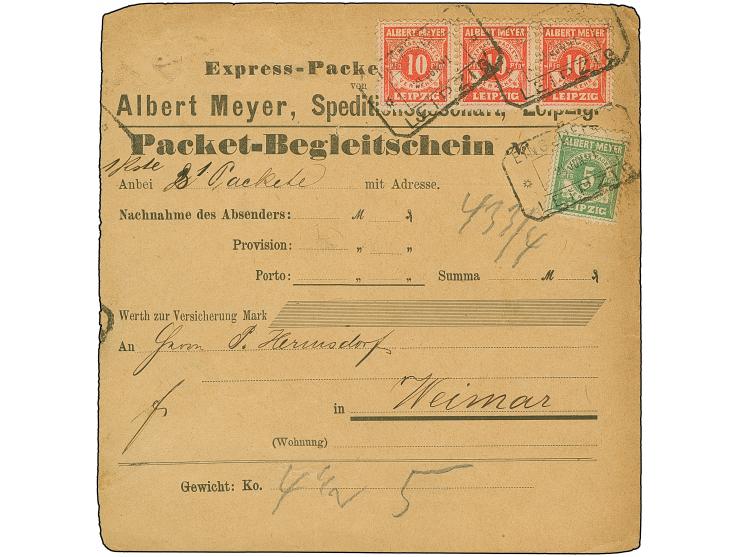 ALBERT MEYER ALBERT MEYER ALBERT MEYER
10 10
LEIPZIG LEIPZIG LEIPZIG
LEIPZIG LEIPZIG
Express-Packe
von
Albert Meyer, Speditionsgesellschaft, Leipzig.
Packet-Begleitschein
ALBERT MEYER
5
LEIPZIG
LEIPZIG
1 Kste
Anbei 1 Packete mit Adresse.
Nachnahme des Absenders: M ₰
433/4
Provision: „ „
Porto: „ „ Summa M ₰
Werth zur Versicherung Mark
An Herrn P. Hermsdorf
in Weimar
(Wohnung)
Gewicht: Ko. 5